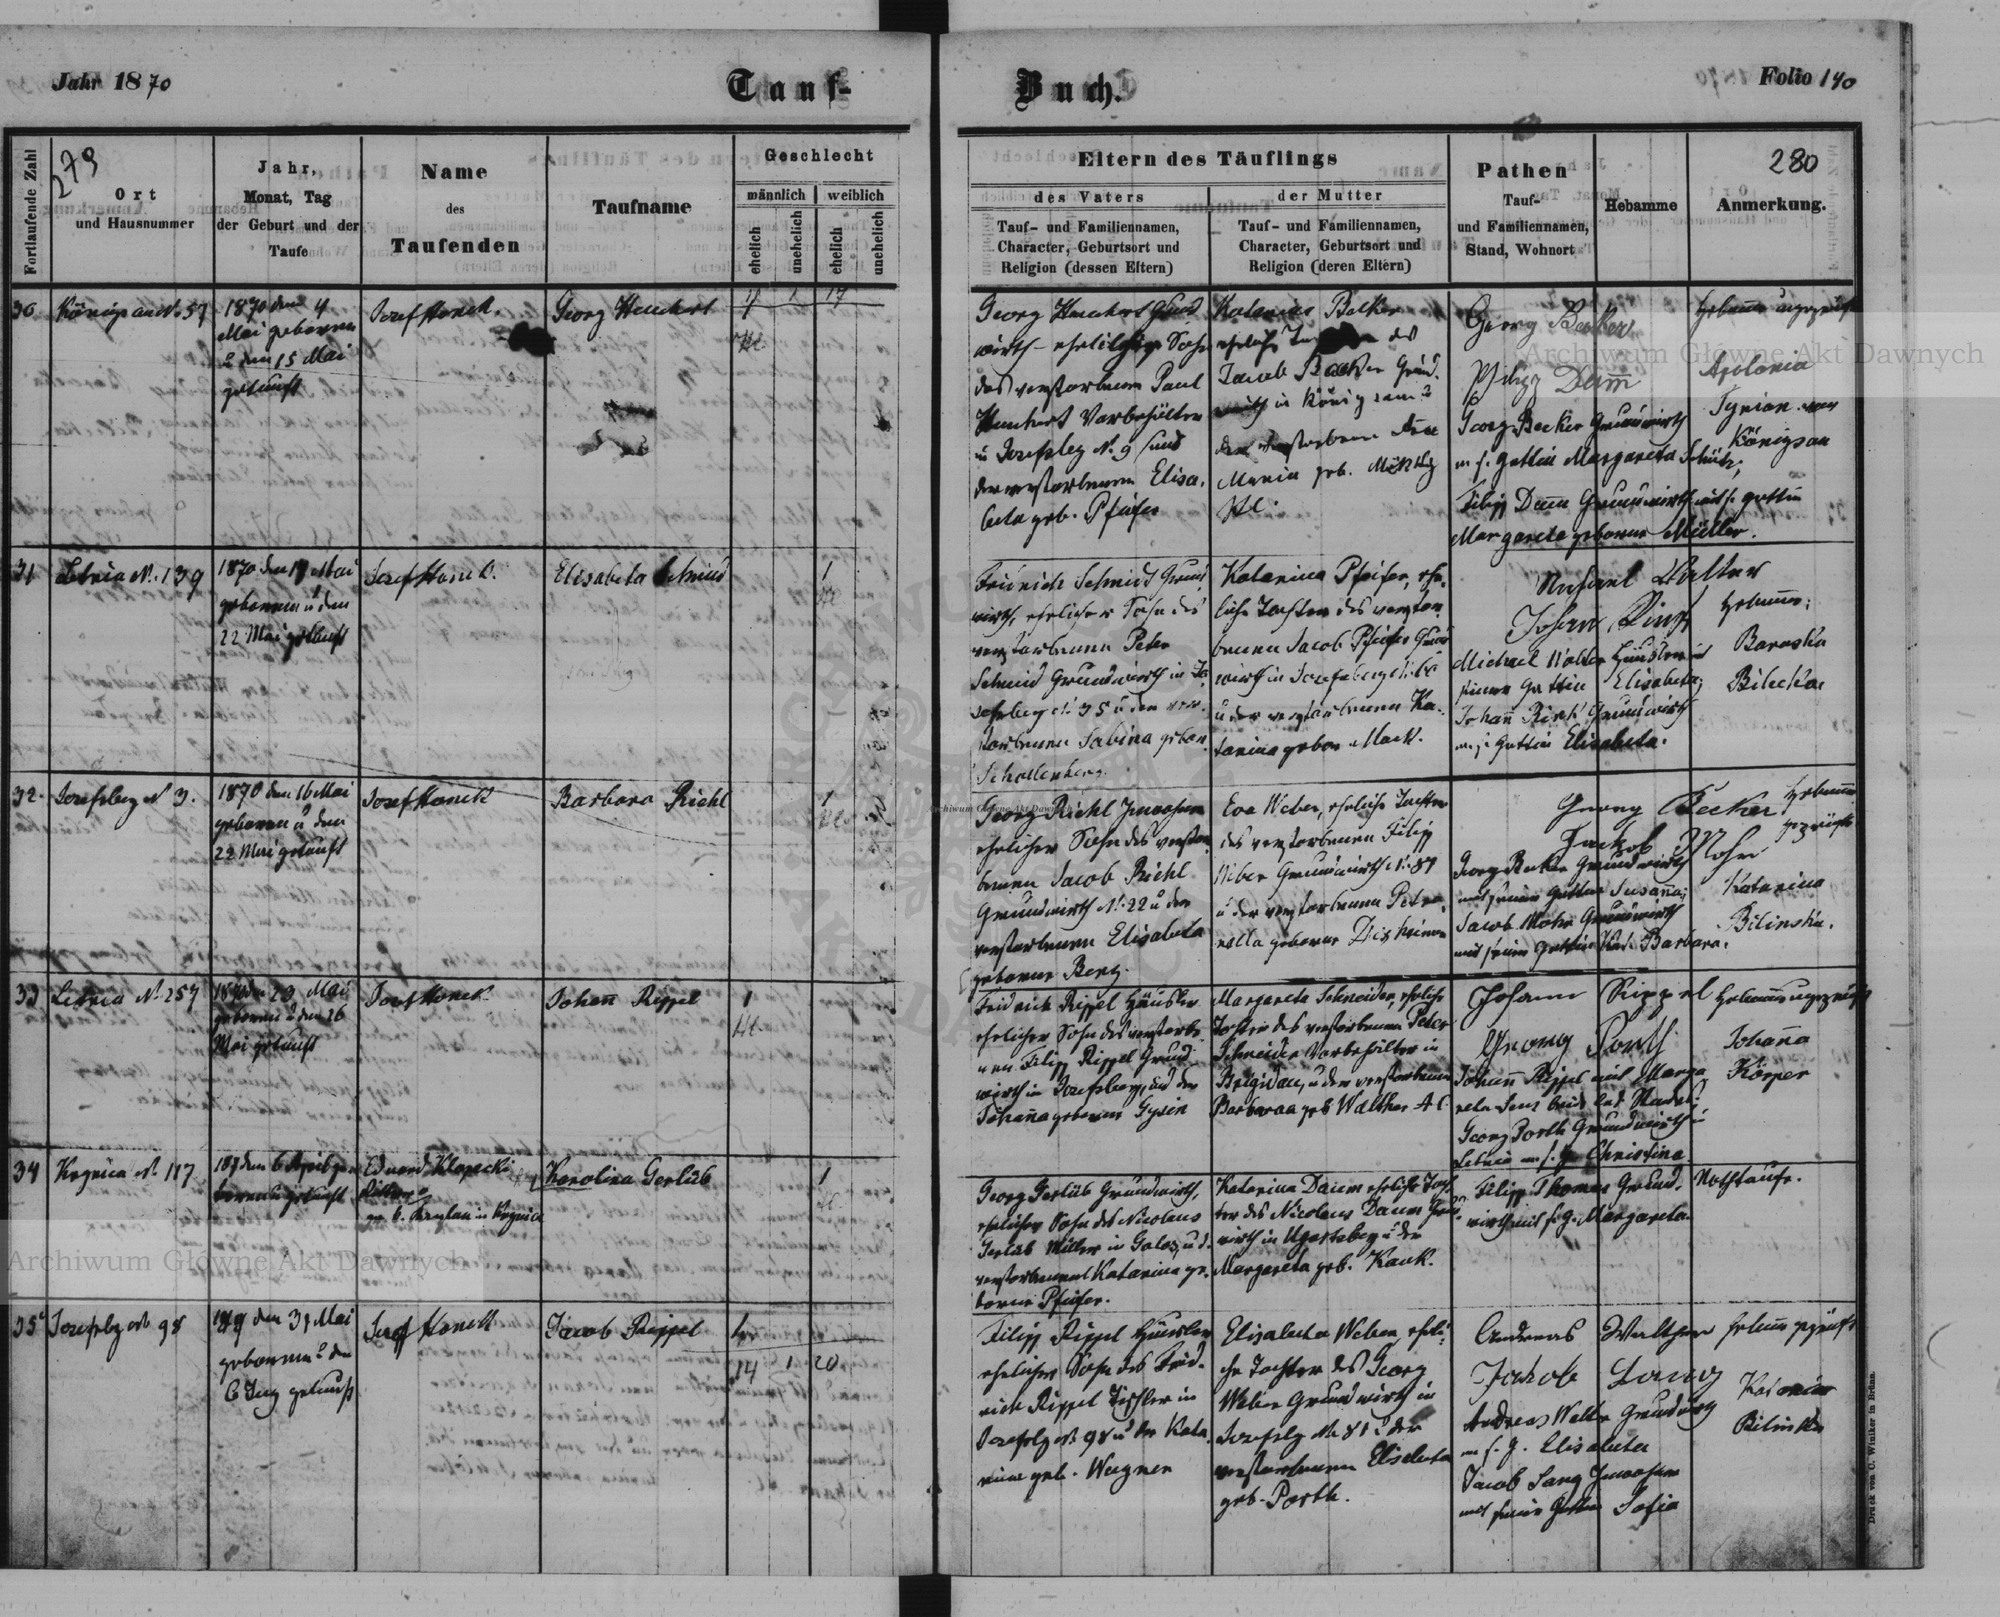 Jahr 1870
Tauf-
Buch.
Folio 140
279
280
Fortlaufende Zahl
Ort
und Hausnummer
Jahr,
Monat, Tag
der Geburt und der
Taufe
Name
des
Taufenden
Taufname
Geschlecht
männlich
weiblich
ehelich
unehelich
ehelich
unehelich
Eltern des Täuflings
des Vaters
der Mutter
Tauf- und Familiennamen,
Character, Geburtsort und
Religion (dessen Eltern)
Tauf- und Familiennamen,
Character, Geburtsort und
Religion (deren Eltern)
Pathen
Tauf-
und Familiennamen,
Stand, Wohnort
Hebamme
Anmerkung.
30
Königsau N. 57
1870 den 4
Mai geboren
u den 15 Mai
getauft
Josef Honek.
Georg Hunchert
1 17
Georg Hunchert Grund
wirth - ehelicher Sohn
des verstorbenen Paul
Hunchert Vorbehälter
in Josefsberg N. 9 und
der verstorbenen Elisa.
beta geb. Pfeifer
Katarina Becker
eheliche des
Jacob Becker Grund.
wirth in Königsau u
der verstorbenen
Maria geb.
Georg Becker
Philipp Damm
Georg Becker Grundwirth
m. s. Gattin Margareta Schütz,
Filipp Daum Grundwirth mit s. Gattin
Margareta geborne Müller.
Apolonia
Königsau
31
Letnia N. 139
1870 den 17 Mai
geboren u den
22 Mai getauft
Josef Honek.
Elisabeta Schmid
1
Fridrich Schmid Grund
wirth, ehelicher Sohn des
verstorbenen Peter
Schmid Grundwirth in Jo
sefsberg N. 35 u der ver.
storbenen Sabina gebor.
Schollenberg.
Katarina Pfeifer, ehe.
liche Tochter des verstor
benen Jacob Pfeifer Grund
wirth in Josefsberg
u der verstorbenen Ka.
tarina gebor. Mack.
Walter
Johan Rink
Michael Walter Häusler mit
seiner Gattin Elisabeta;
Johann Rink Grundwirth
m. s. Gattin Elisabeta.
Hebamme:
Baraska
Bilecka
32.
Josefsberg N 3.
1870 den 16 Mai
geboren u den
22 Mai getauft
Josef Honek
Barbara Richl
1
Georg Richl Inwohner
ehelicher Sohn des verstor
benen Jacob Richl
Grundwirth N. 22 u der
verstorbenen Elisabeta
geborne Berg.
Eva Weber, eheliche Tochter
des verstorbenen Filipp
Weber Grundwirth N. 87
u der verstorbenen Petro.
nella geborne
Georg Becker
Jackob Mohr
Georg Becker Grundwirth
mit seiner Gattin Susanna;
Jacob Mohr Grundwirth
mit seiner Gattin Barbara.
Hebamme
geprüft
Katarina
Bilinska.
33
Letnia N. 257
1870 den 23 Mai
geboren u den 26
Mai getauft
Josef Honek
Johann Rippel
1
Fridrich Rippel Häusler
ehelicher Sohn des verstorbe
nen Filipp Rippel Grund
wirth in Josefsberg, und der
Johanna geborne Gysin
Margareta Schneider, eheliche
Tochter des verstorbenen Peter
Schneider Vorbehälter in
Brigidau, u der verstorbenen
Barbara geb. Walther A. C.
Johann Rippel
Georg Porth
Johann Rippel mit Marga
Georg Porth Grundwirth in
Letnia m. s. G. Christina
Johanna
Körper
34
Krynica N. 117
den 6 April ge
boren u getauft
Eduard Klopecki
Karolina Gerlüb
1
Georg Gerlüb Grundwirth,
ehelicher Sohn des Nicolaus
Gerlüb Müller in u d.
verstorbenen Katarina ge.
borne Pfeifer.
Katarina Daum eheliche Toch
ter des Nicolaus Daum Grund
wirth in Ugartsberg u der
Margareta geb. Kauk.
Filipp Thomas Grund.
wirth mit s. G. Margareta.
Nothtaufe.
35
Josefsberg N. 98
den 31 Mai
geboren u den
6 Juny getauft
Josef Honek
Jacob Rippel
14 1 20
Filipp Rippel Häusler
ehelicher Sohn des Frid.
rich Rippel Tischler in
Josefsberg N. 98 u der Kata
rina geb. Wagner
Elisabeta Weber, eheli.
che Tochter des Georg
Weber Grundwirth in
Josefsberg N. 81 u der
verstorbenen Elisabeta
geb. Porth.
Andreas Walther
Jakob Lang
Andreas Walter Grundwirth
m. s. G. Elisabeta
Jacob Lang Inwohner
mit seiner Gattin Sofia
Hebamme geprüft
Katarina
Bilinska
Druck von C. Winiker in Brünn.
Archiwum Główne Akt Dawnych
Archiwum Główne Akt Dawnych
Archiwum Główne Akt Dawnych